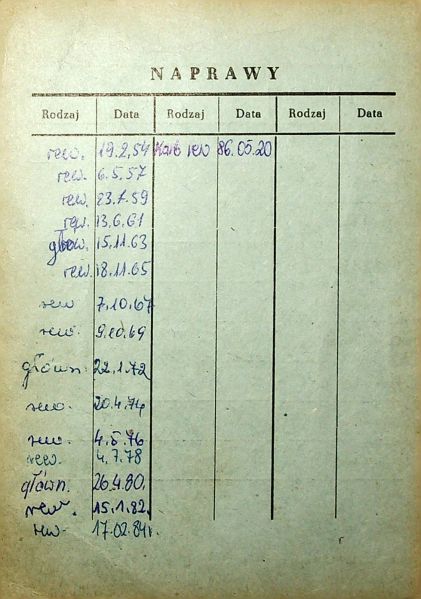 NAPRAWY
Rodzaj Data Rodzaj Data Rodzaj Data
rew. 19.2.54 rew 86.05.20
rew. 6.5.57
rew. 23.1.59
rew. 13.6.61
głów. 15.11.63
rew. 18.11.65
rew 7.10.67
rew. 9.10.69
główn. 22.1.72
rew. 20.4.74
rew. 4.5.76
rew. 4.7.78
główn. 26.4.80.
rew. 15.1.82.
rew. 17.02.84r.